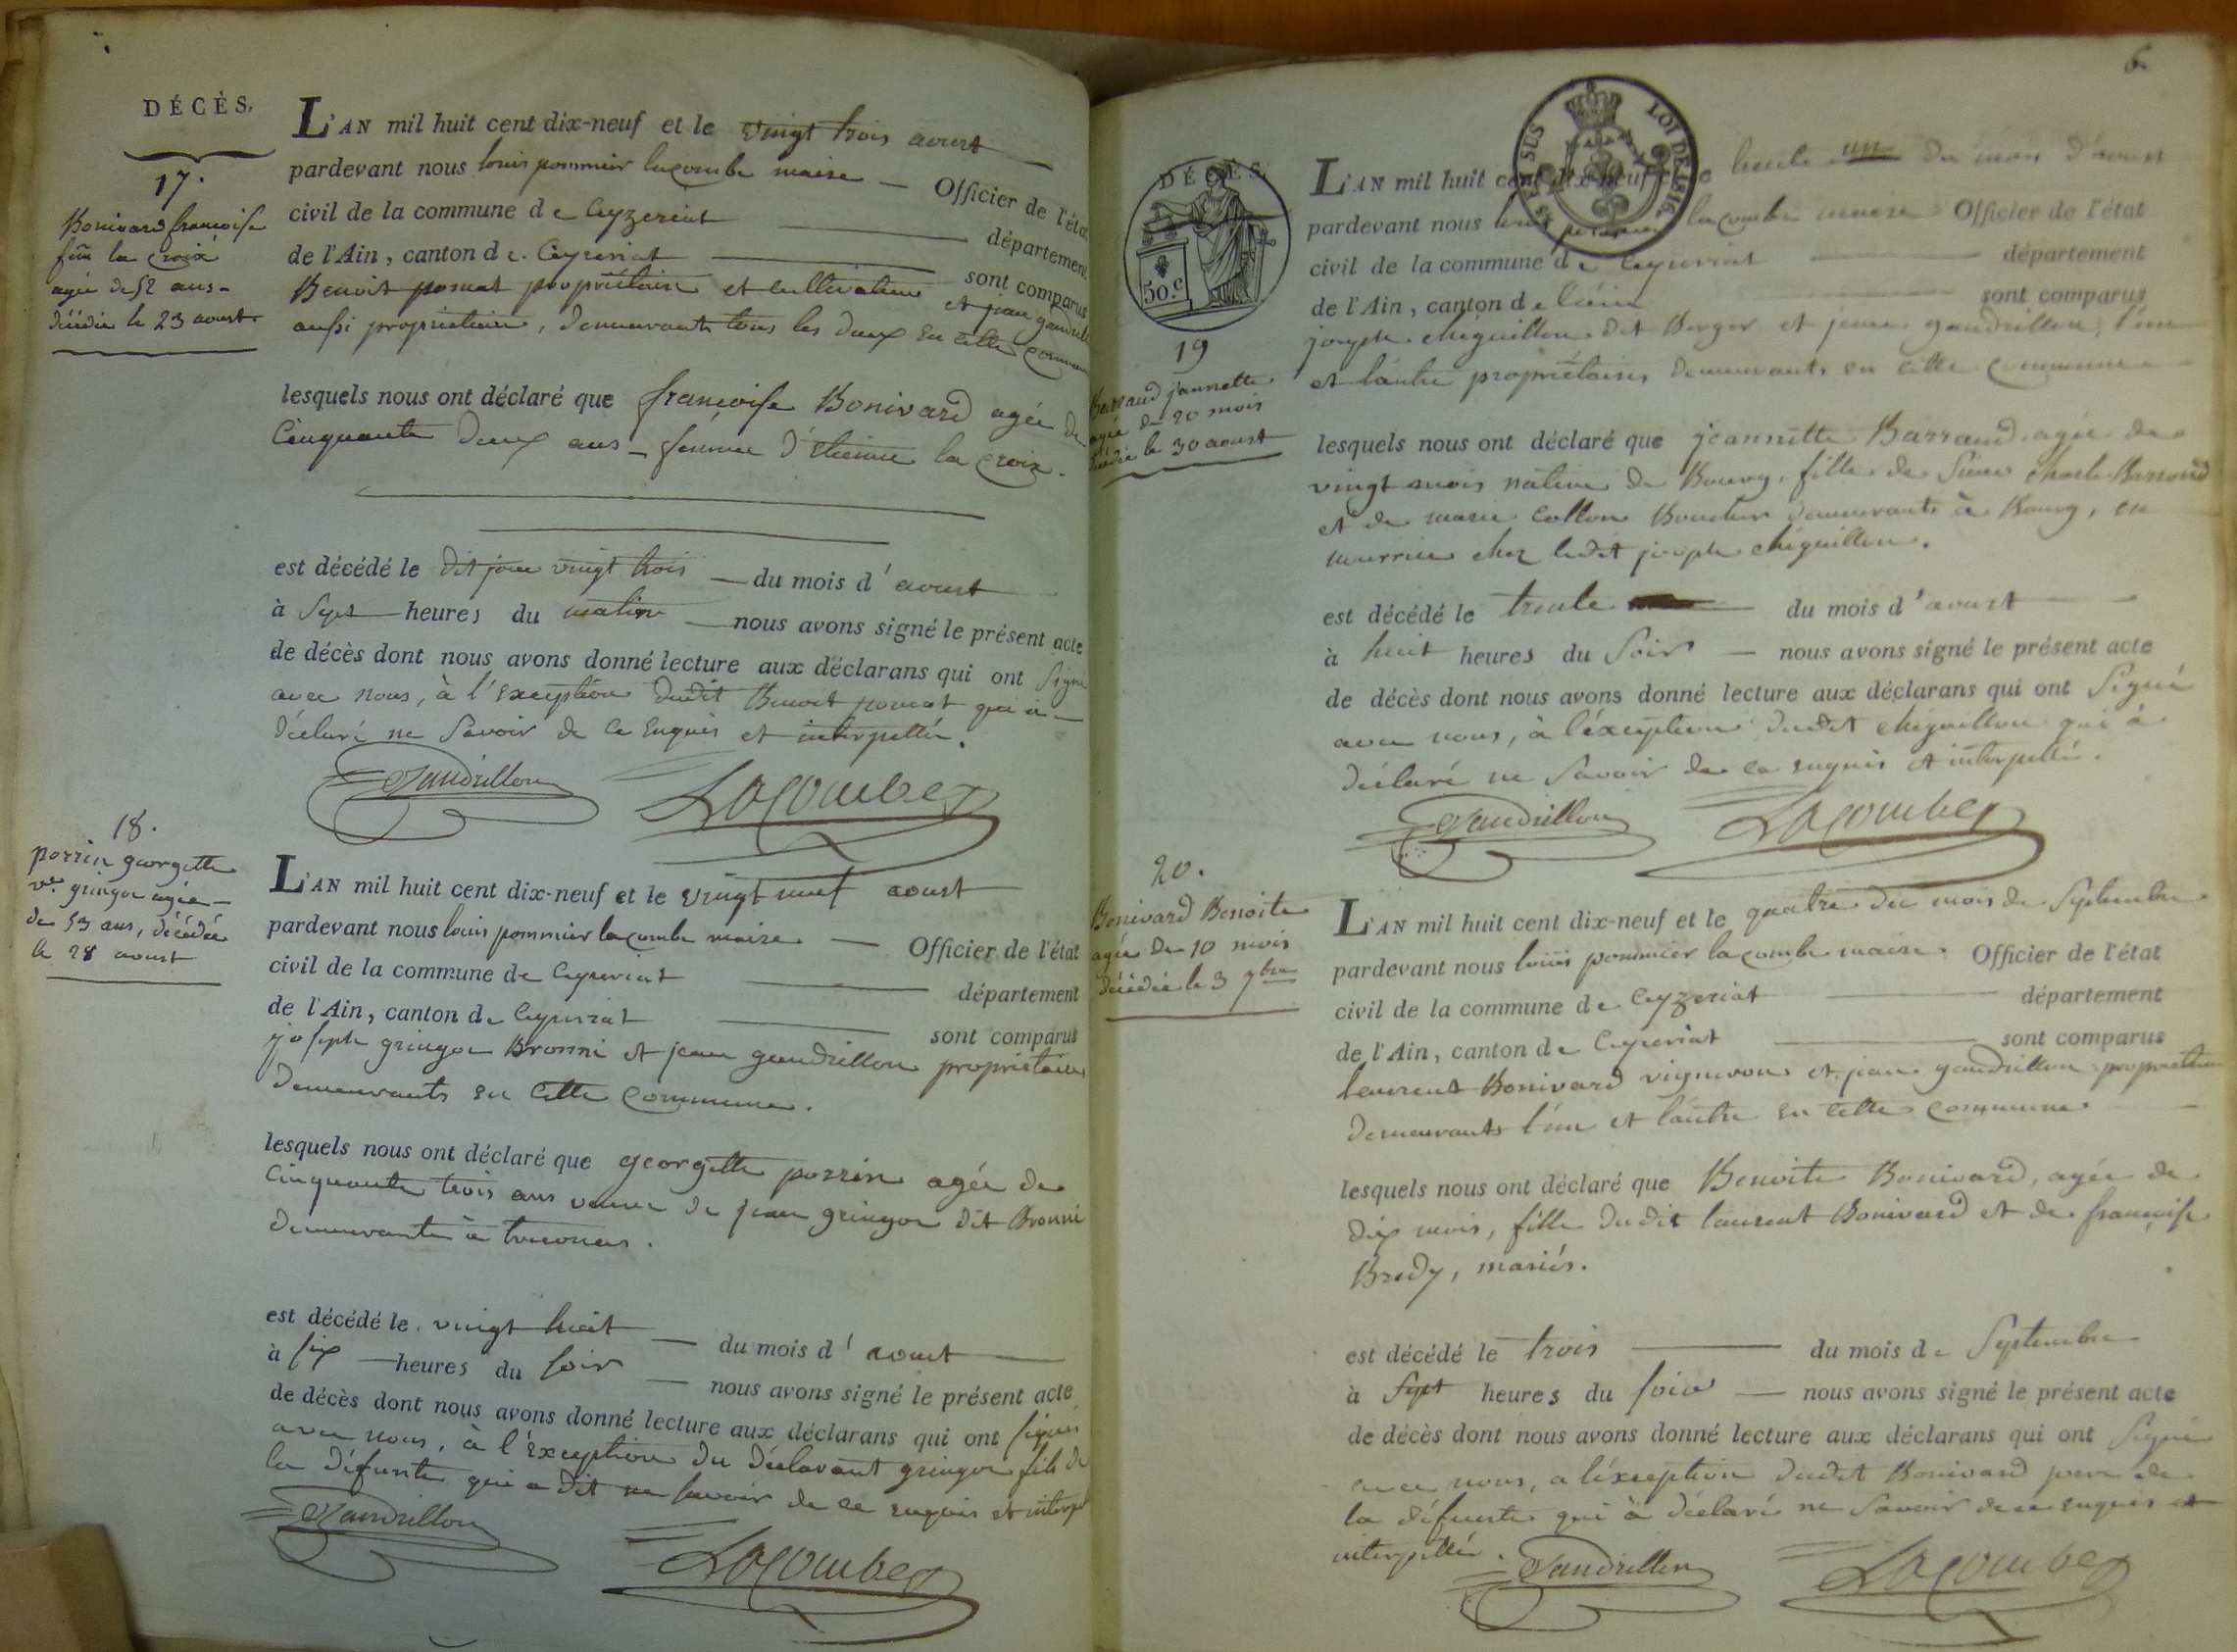 DÉCÈS.
17.
Bonivard françoise
fem la croix
agée de 52 ans
décédée le 23 aoust.
L'AN mil huit cent dix-neuf et le vingt trois aoust
pardevant nous louis pommier lacombe maire — Officier de l'état
civil de la commune de Ceyzeriat département
de l'Ain, canton de Ceyzeriat sont comparus
Benoit poncet propriétaire et cultivateur et jean gandrillon
aussi propriétaire, demeurants tous les deux en cette commune
lesquels nous ont déclaré que françoise Bonivard agée de
Cinquante deux ans — femme d'Etienne la croix.
est décédé le dit jour vingt trois — du mois d'aoust
à sept heures du matin — nous avons signé le présent acte
de décès dont nous avons donné lecture aux déclarans qui ont signé
avec nous, à l'exception dudit Benoit poncet qui a
déclaré ne savoir de ce enquis et interpellé.
Gandrillon Lacombe
18.
perrin georgette
ve. gringoz agée
de 53 ans, décédée
le 28 aoust
L'AN mil huit cent dix-neuf et le vingt neuf aoust
pardevant nous louis pommier lacombe maire — Officier de l'état
civil de la commune de Ceyzeriat département
de l'Ain, canton de Ceyzeriat sont comparus
joseph gringoz Bronni et jean gandrillon propriétaires
demeurants en cette commune.
lesquels nous ont déclaré que georgette perrin agée de
Cinquante trois ans veuve de jean gringoz dit Bronni
demeurante à
est décédé le vingt huit — du mois d'aoust
à six heures du soir — nous avons signé le présent acte
de décès dont nous avons donné lecture aux déclarans qui ont signés
avec nous, à l'exception du déclarant gringoz fils de
la défunte qui a dit ne savoir de ce enquis et interpellé
Gandrillon Lacombe
6.
SUS LOI DE 1816
DÉCÈS.
50.c
19
Barraud jeannette
agée de 20 mois
décédée le 30 aoust
L'AN mil huit cent dix-neuf et le trente un du mois d'aoust
pardevant nous louis pommier lacombe maire Officier de l'état
civil de la commune de Ceyzeriat département
de l'Ain, canton de sont comparus
joseph chiquillon dit Berger et jean gandrillon, l'un
et l'autre propriétaires demeurants en cette commune
lesquels nous ont déclaré que jeannette Barraud agée de
vingt mois native de Bourg, fille de sieur charle Barraud
et de marie Collon Boucher demeurants à Bourg, en
nourrice chez ledit joseph chiquillon.
est décédé le trente du mois d'aoust
à huit heures du soir — nous avons signé le présent acte
de décès dont nous avons donné lecture aux déclarans qui ont signé
avec nous, à l'exception dudit chiquillon qui à
déclaré ne savoir de ce enquis et interpellé.
Gandrillon Lacombe
20.
Bonivard Benoite
agée de 10 mois
décédée le 3 7bre
L'AN mil huit cent dix-neuf et le quatre du mois de Septembre
pardevant nous louis pommier lacombe maire Officier de l'état
civil de la commune de Ceyzeriat département
de l'Ain, canton de Ceyzeriat sont comparus
laurent Bonivard vigneron et jean gandrillon propriétaire
demeurants l'un et l'autre en cette commune
lesquels nous ont déclaré que Benoite Bonivard, agée de
dix mois, fille dudit laurent Bonivard et de françoise
Brédy, mariés.
est décédé le trois du mois de Septembre
à sept heures du soir — nous avons signé le présent acte
de décès dont nous avons donné lecture aux déclarans qui ont signé
avec nous, a l'exception dudit Bonivard pere de
la défunte qui à déclaré ne savoir de ce enquis et
interpellé. Gandrillon Lacombe